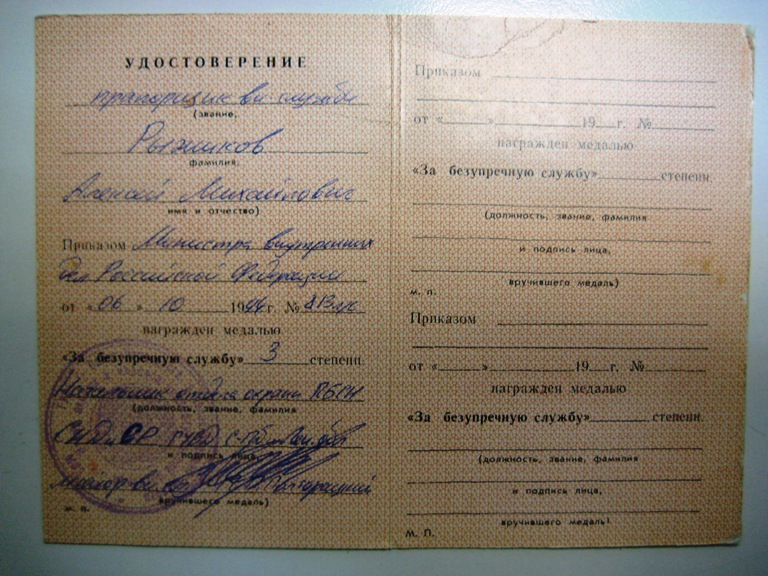 УДОСТОВЕРЕНИЕ
прапорщик вн службы
(звание,
Рыжиков
фамилия,
Алексей Михайлович
имя и отчество)
Приказом Министра внутренних
дел Российской Федерации
от «06» 10 1994 г. №
награжден медалью
«За безупречную службу» 3 степени.
Начальник отдела охраны
(должность, звание, фамилия
и подпись лица,
майор вн сл
вручившего медаль)
м. п.
Приказом
от « » 19 г. №
награжден медалью
«За безупречную службу» степени.
(должность, звание, фамилия
и подпись лица,
вручившего медаль)
м. п.
Приказом
от « » 19 г. №
награжден медалью
«За безупречную службу» степени.
(должность, звание, фамилия
и подпись лица,
вручившего медаль)
М. П.